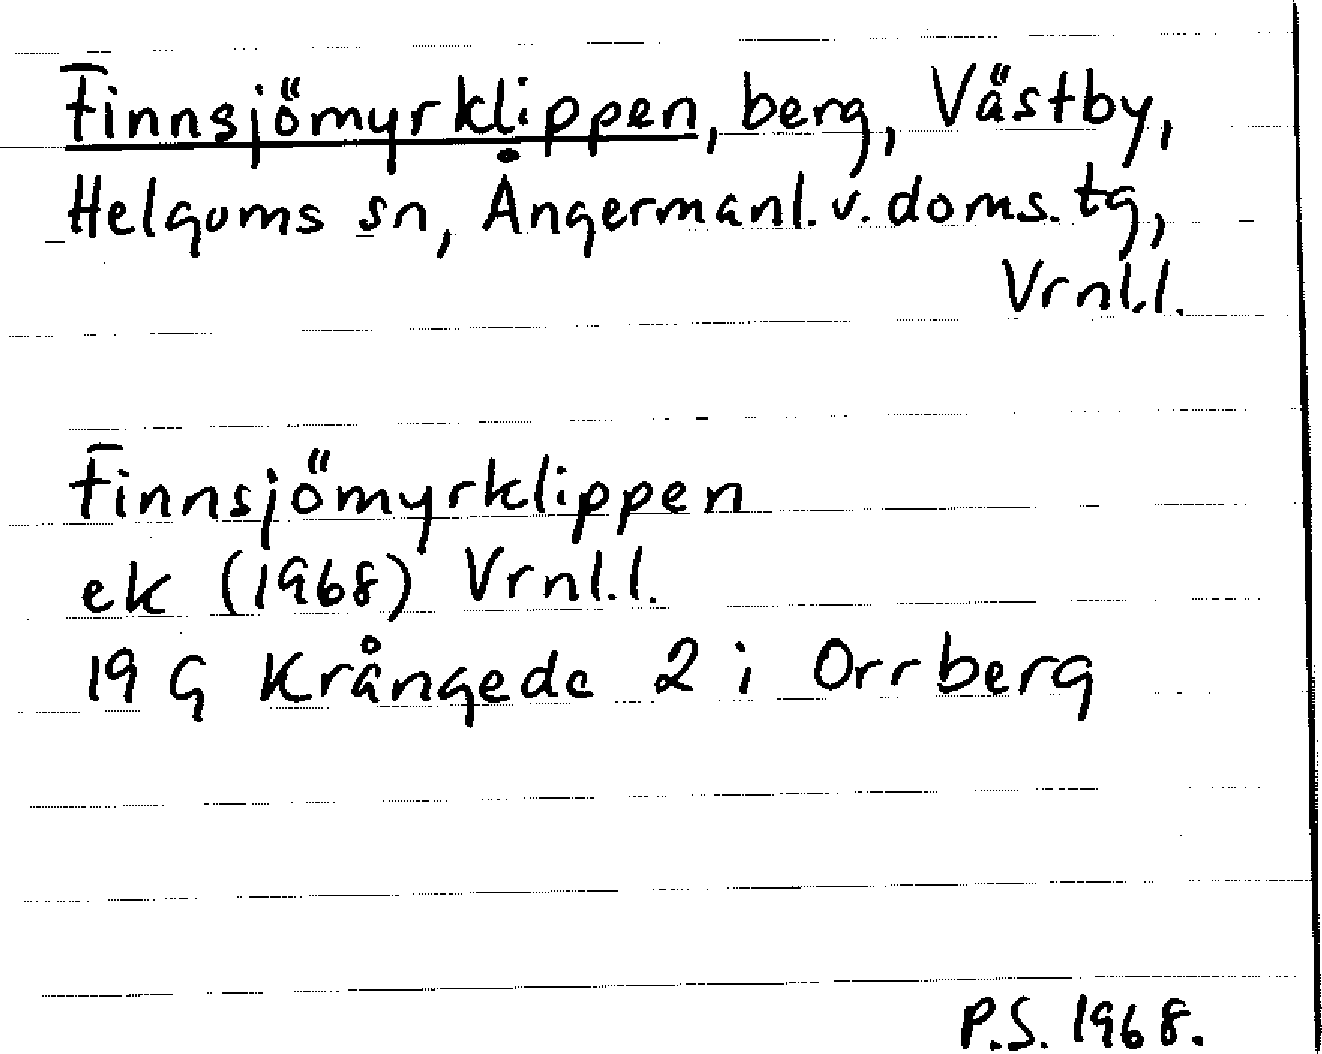 Finnsjömyrklippen, berg, Västby,
Helgums sn, Ångermanl. v. doms. tg,
Vrnl.l.
Finnsjömyrklippen
ek (1968) Vrnl.l.
19 G Krångede 2 i Orrberg
P.S. 1968.